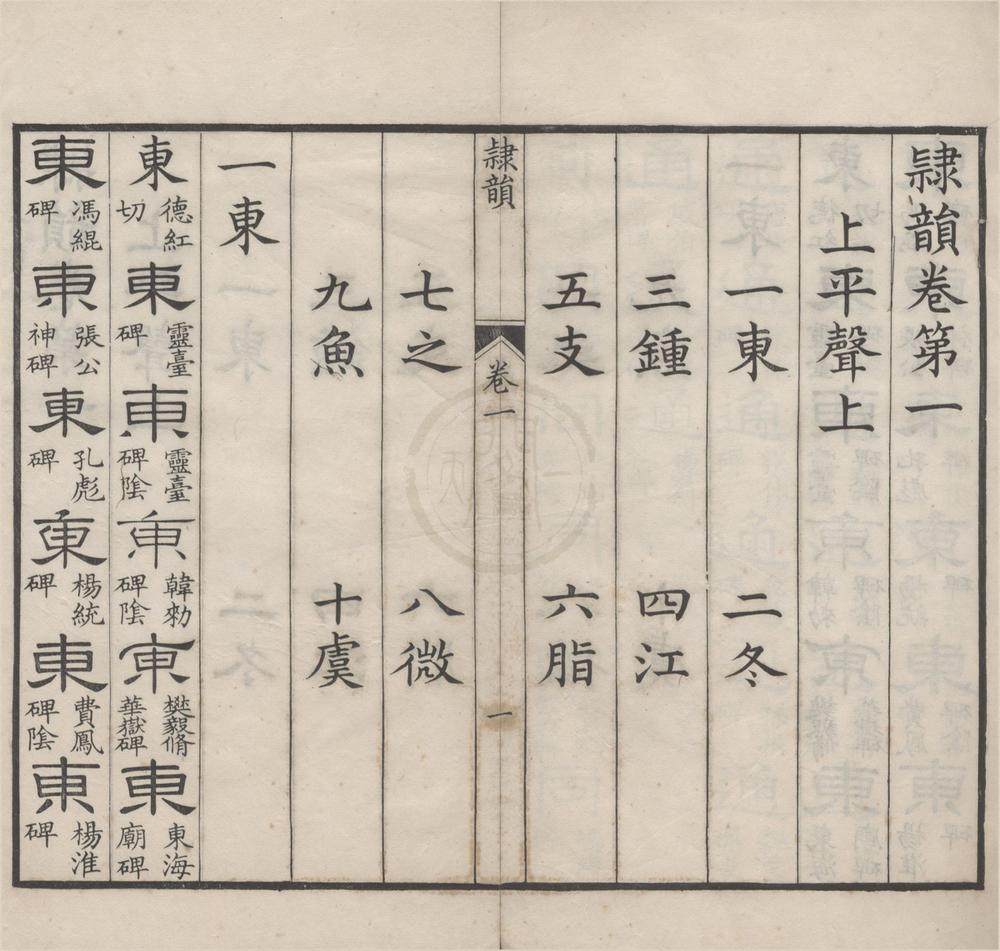 隷韻卷第一
上平聲上
一東 二冬
三鍾 四江
五支 六脂
隷韻 卷一 一
七之 八微
九魚 十虞
一東
東 德紅切 東 靈臺碑 東 靈臺碑陰 東 韓勑碑陰 東 樊毅脩華嶽碑 東 東海廟碑
東 馮緄碑 東 張公神碑 東 孔彪碑 東 楊統碑 東 費鳳碑陰 東 楊淮碑